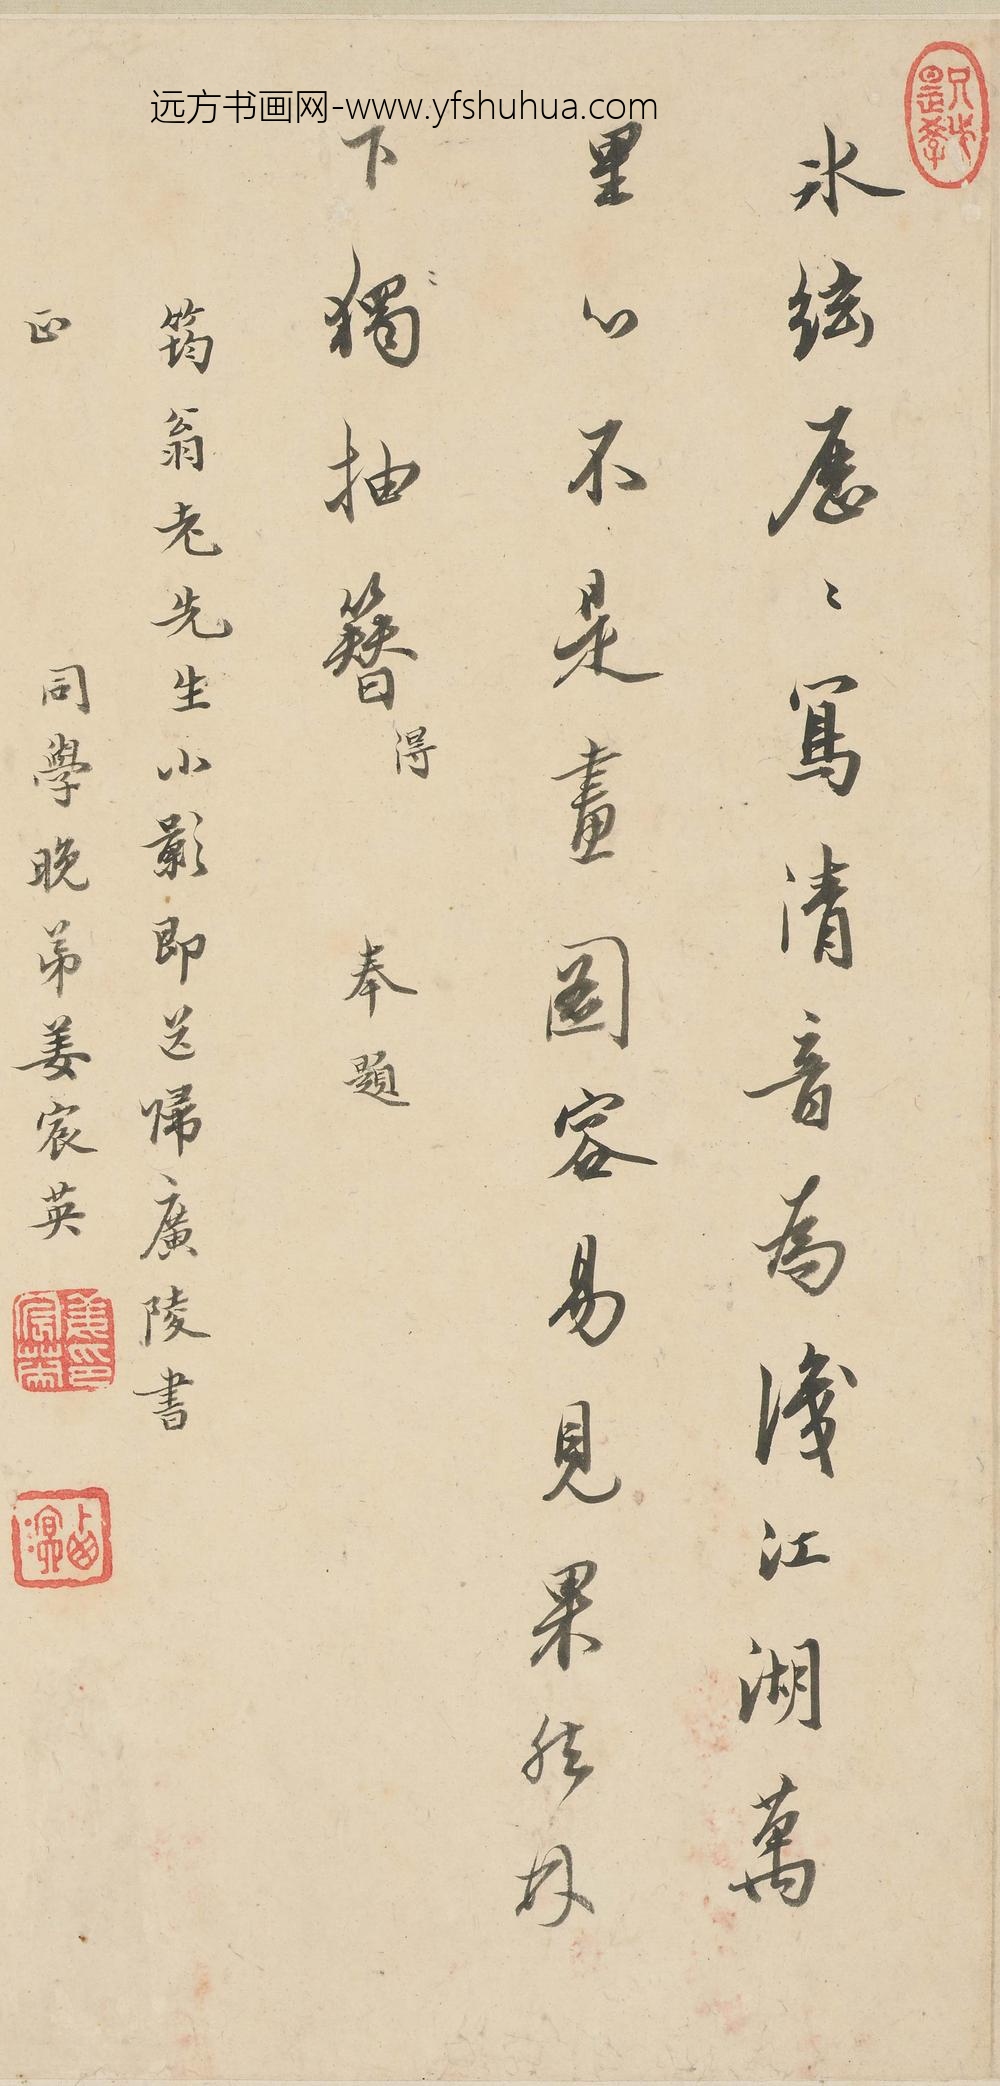 远方书画网-www.yfshuhua.com
冰絃歷〻寫清音為識江湖萬
里心不是畫圖容易見果然林
下獨抽簪 得 奉題
筠翁老先生小影即送歸廣陵書
正 同學晚弟姜宸英
姜印宸英
西溟